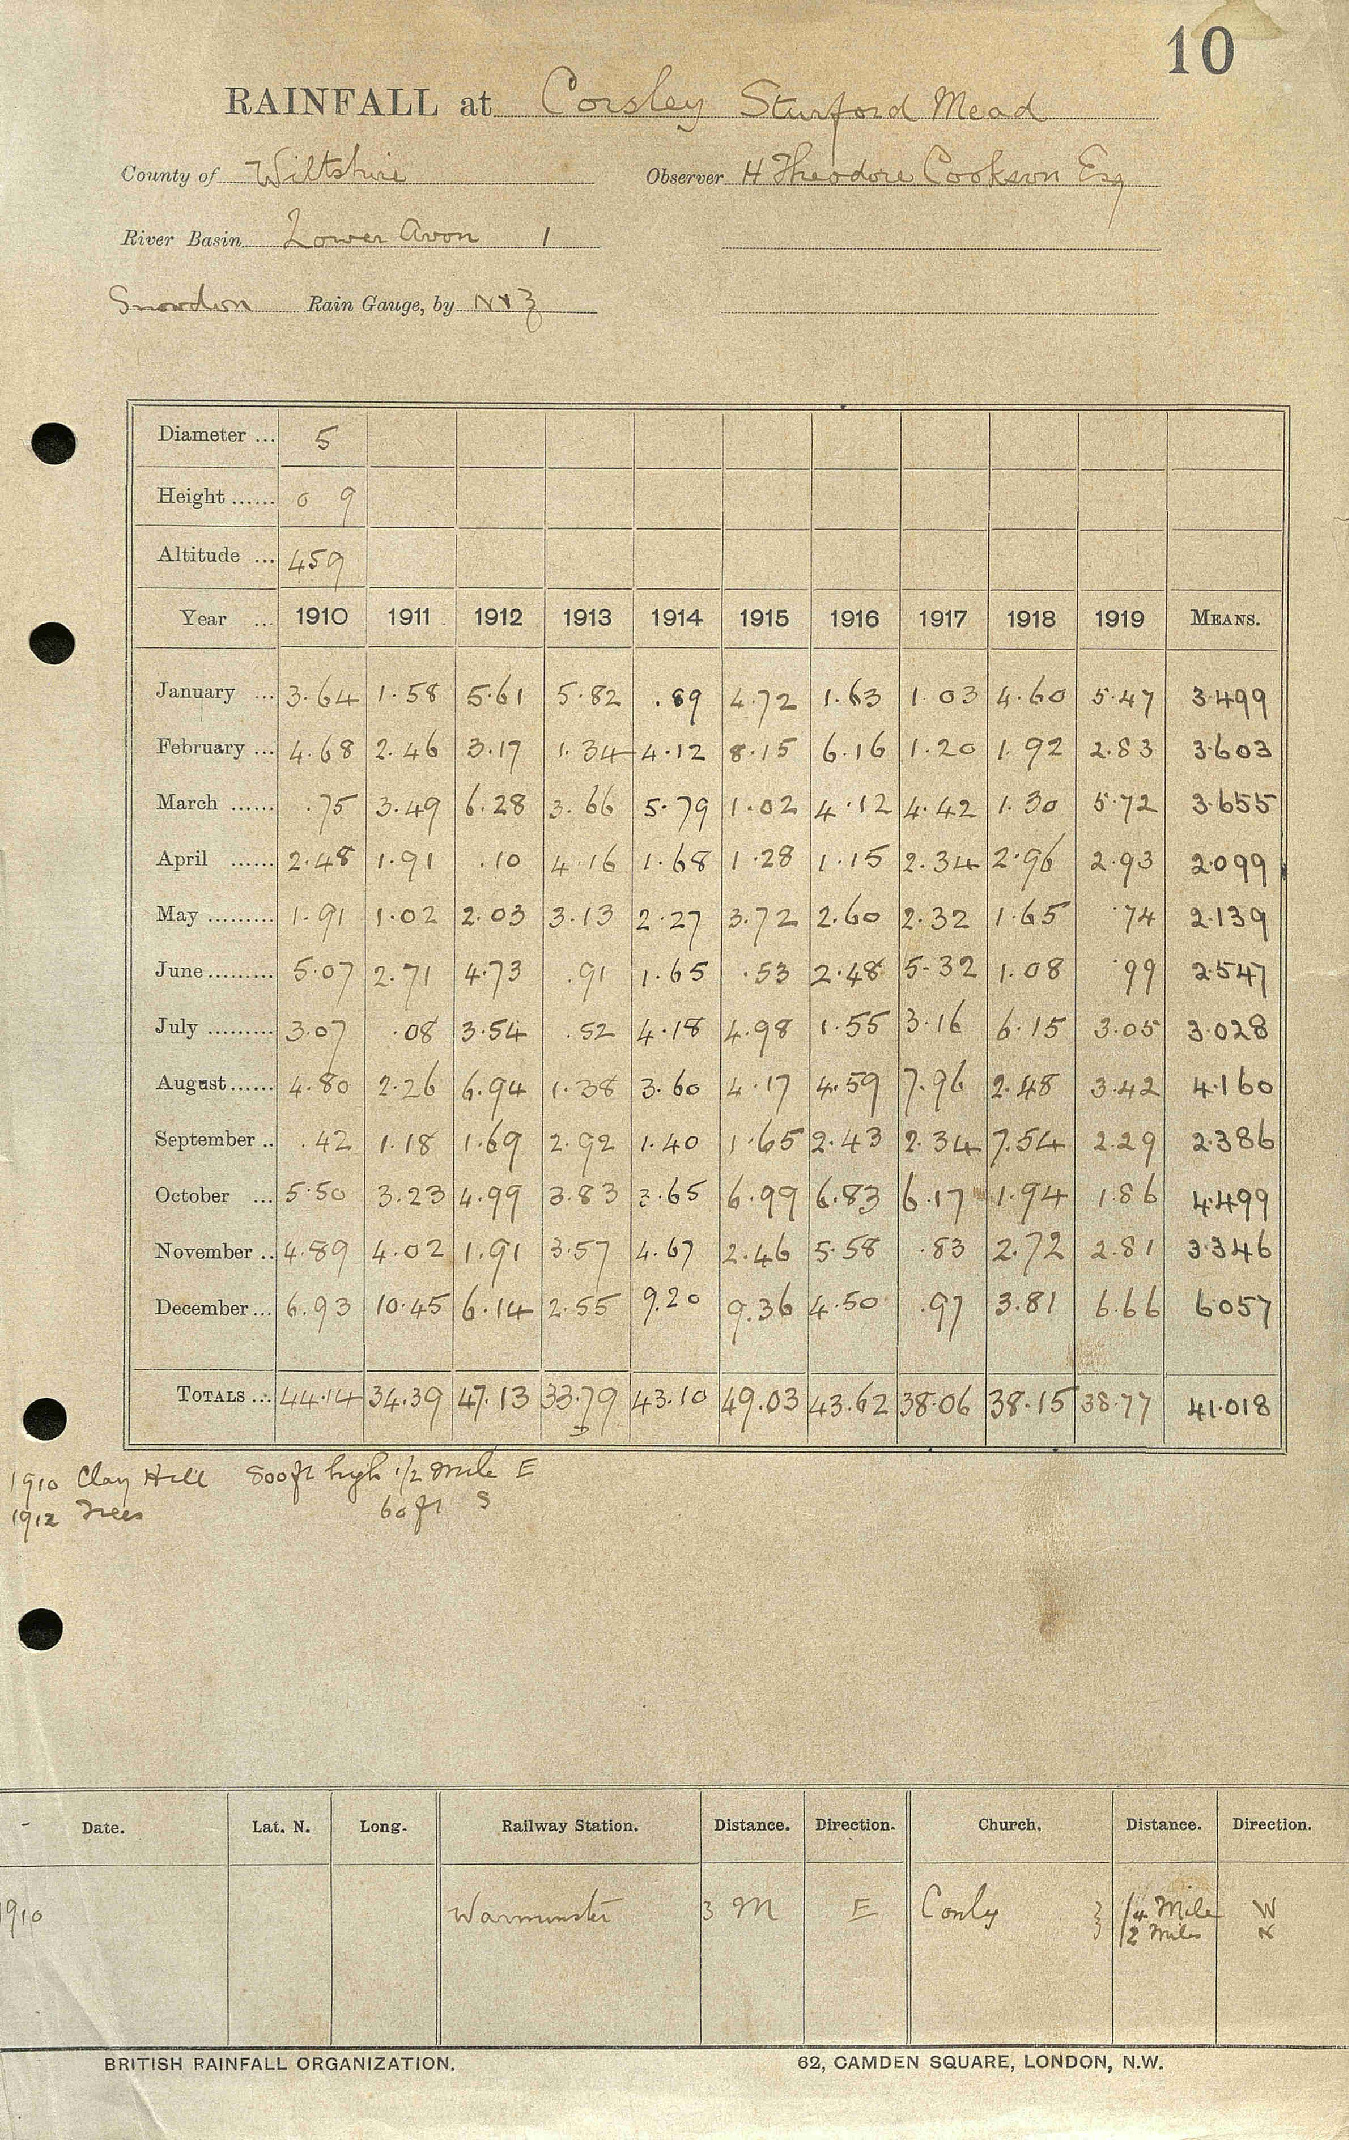 10
RAINFALL at Corsley Sturford Mead
County of Wiltshire Observer H Theodore Cookson Esq
River Basin Lower Avon 1
Snowdon Rain Gauge, by N & Z
Diameter ... 5
Height ...... 0 9
Altitude ... 459
Year ... 1910 1911 1912 1913 1914 1915 1916 1917 1918 1919 MEANS.
January ... 3.64 1.58 5.61 5.82 .89 4.72 1.63 1.03 4.60 5.47 3.499
February ... 4.68 2.46 3.17 1.34 4.12 8.15 6.16 1.20 1.92 2.83 3.603
March ...... .75 3.49 6.28 3.66 5.79 1.02 4.12 4.42 1.30 5.72 3.655
April ...... 2.48 1.91 .10 4.16 1.68 1.28 1.15 2.34 2.96 2.93 2.099
May ......... 1.91 1.02 2.03 3.13 2.27 3.72 2.60 2.32 1.65 .74 2.139
June ......... 5.07 2.71 4.73 .91 1.65 .53 2.48 5.32 1.08 .99 2.547
July ......... 3.07 .08 3.54 .52 4.18 4.98 1.55 3.16 6.15 3.05 3.028
August ...... 4.80 2.26 6.94 1.38 3.60 4.17 4.59 7.96 2.48 3.42 4.160
September .. .42 1.18 1.69 2.92 1.40 1.65 2.43 2.34 7.54 2.29 2.386
October ... 5.50 3.23 4.99 3.83 3.65 6.99 6.83 6.17 1.94 1.86 4.499
November .. 4.89 4.02 1.91 3.57 4.67 2.46 5.58 .83 2.72 2.81 3.346
December ... 6.93 10.45 6.14 2.55 9.20 9.36 4.50 .97 3.81 6.66 6057
TOTALS ... 44.14 34.39 47.13 33.79 43.10 49.03 43.62 38.06 38.15 38.77 41.018
1910 Clay Hill 800ft high 1/2 mile E
1912 Trees 60 ft S
Date. Lat. N. Long. Railway Station. Distance. Direction. Church. Distance. Direction.
1910 Warminster 3 M E 1/4 Mile W
1/2 Miles N
BRITISH RAINFALL ORGANIZATION. 62, CAMDEN SQUARE, LONDON, N.W.